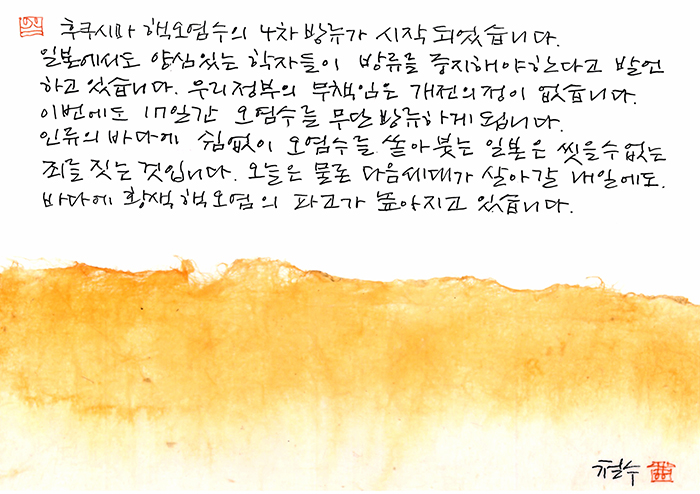 후쿠시마 핵오염수의 4차 방류가 시작되었습니다.
일본에서도 양심있는 학자들이 방류를 중지해야한다고 발언
하고있습니다. 우리정부의 무책임은 개전의정이 없습니다.
이번에도 17일간 오염수를 무단방류하게 됩니다.
인류의 바다에 쉼없이 오염수를 쏟아붓는 일본은 씻을수없는
죄를 짓는 것입니다. 오늘은 물론 다음세대가 살아갈 내일에도.
바다에 황색 핵오염의 파고가 높아지고 있습니다.
철수